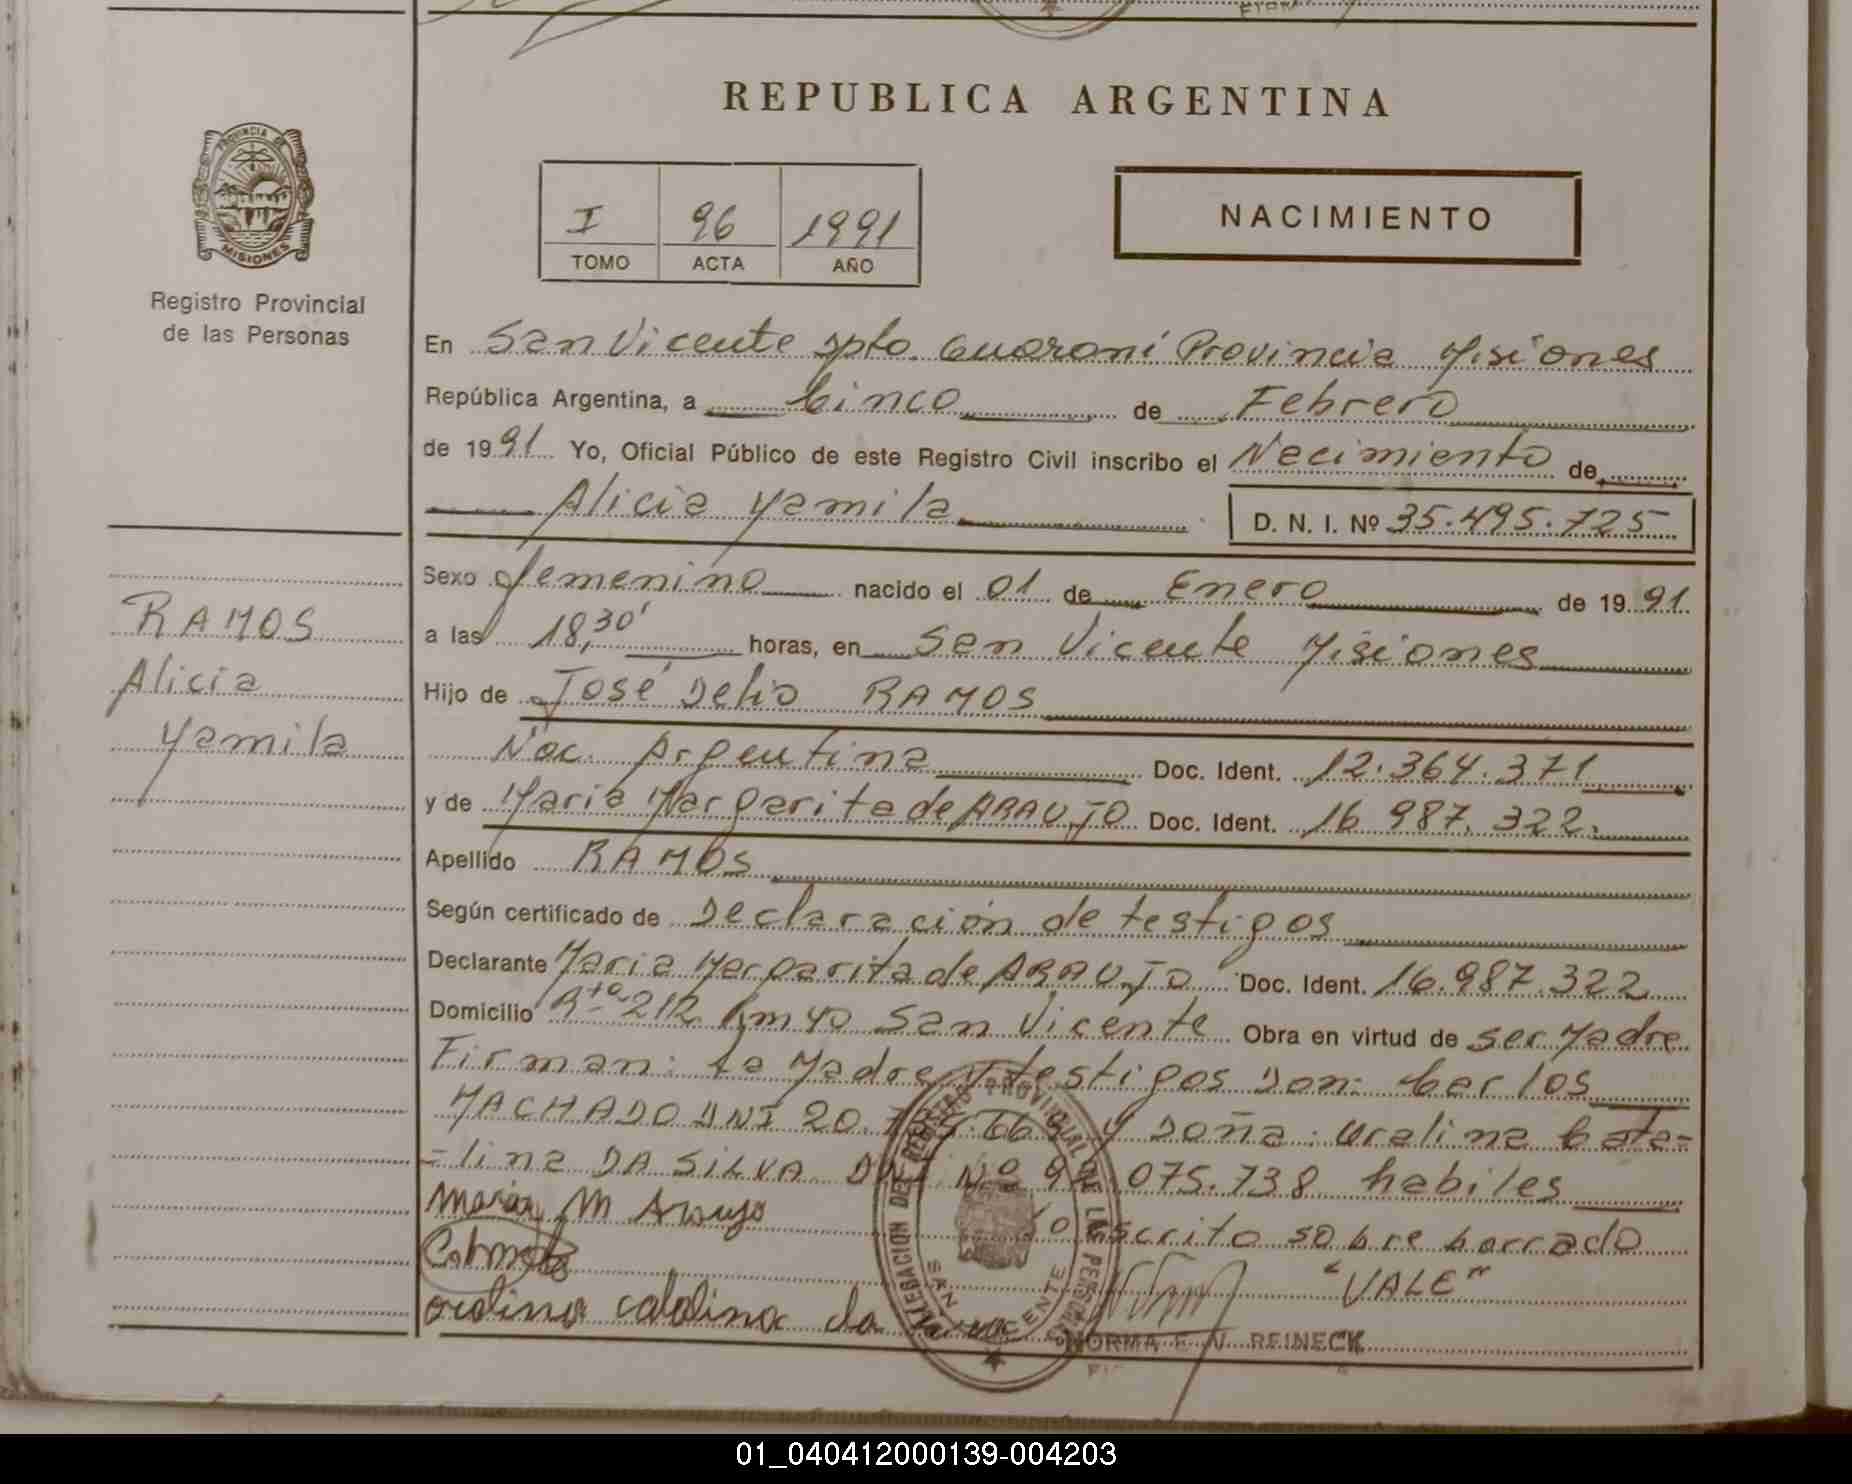 REPUBLICA ARGENTINA
PROVINCIA DE
MISIONES
Registro Provincial
de las Personas
I 96 1991
TOMO ACTA AÑO
NACIMIENTO
En San Vicente Dpto. Guaraní Provincia Misiones
República Argentina, a Cinco de Febrero
de 1991 Yo, Oficial Público de este Registro Civil inscribo el Nacimiento de
Alicia Yamila D. N. I. Nº 35.495.725
Sexo femenino nacido el 01 de Enero de 1991
a las 18,30' horas, en San Vicente Misiones
Hijo de José Delio RAMOS
Nac. Argentina Doc. Ident. 12.364.371
y de María Margarita de ARAUJO Doc. Ident. 16 987.322.
Apellido RAMOS
Según certificado de Declaración de testigos
Declarante María Margarita de ARAUJO Doc. Ident. 16.987.322
Domicilio Rta 212 Km 40 San Vicente Obra en virtud de ser Madre
Firman: La Madre y testigos Don: Carlos
MACHADO DNI 20. y Doña: Oralina Cata=
=lina DA SILVA DNI Nº 075.738 habiles
Maria M Araujo escrito sobre borrado
"VALE"
oralina catalina da
NORMA E. V. REINECK
DELEGACION DEL REGISTRO PROVINCIAL DE LAS PERSONAS
SAN VICENTE
RAMOS
Alicia
Yamila
01_040412000139-004203